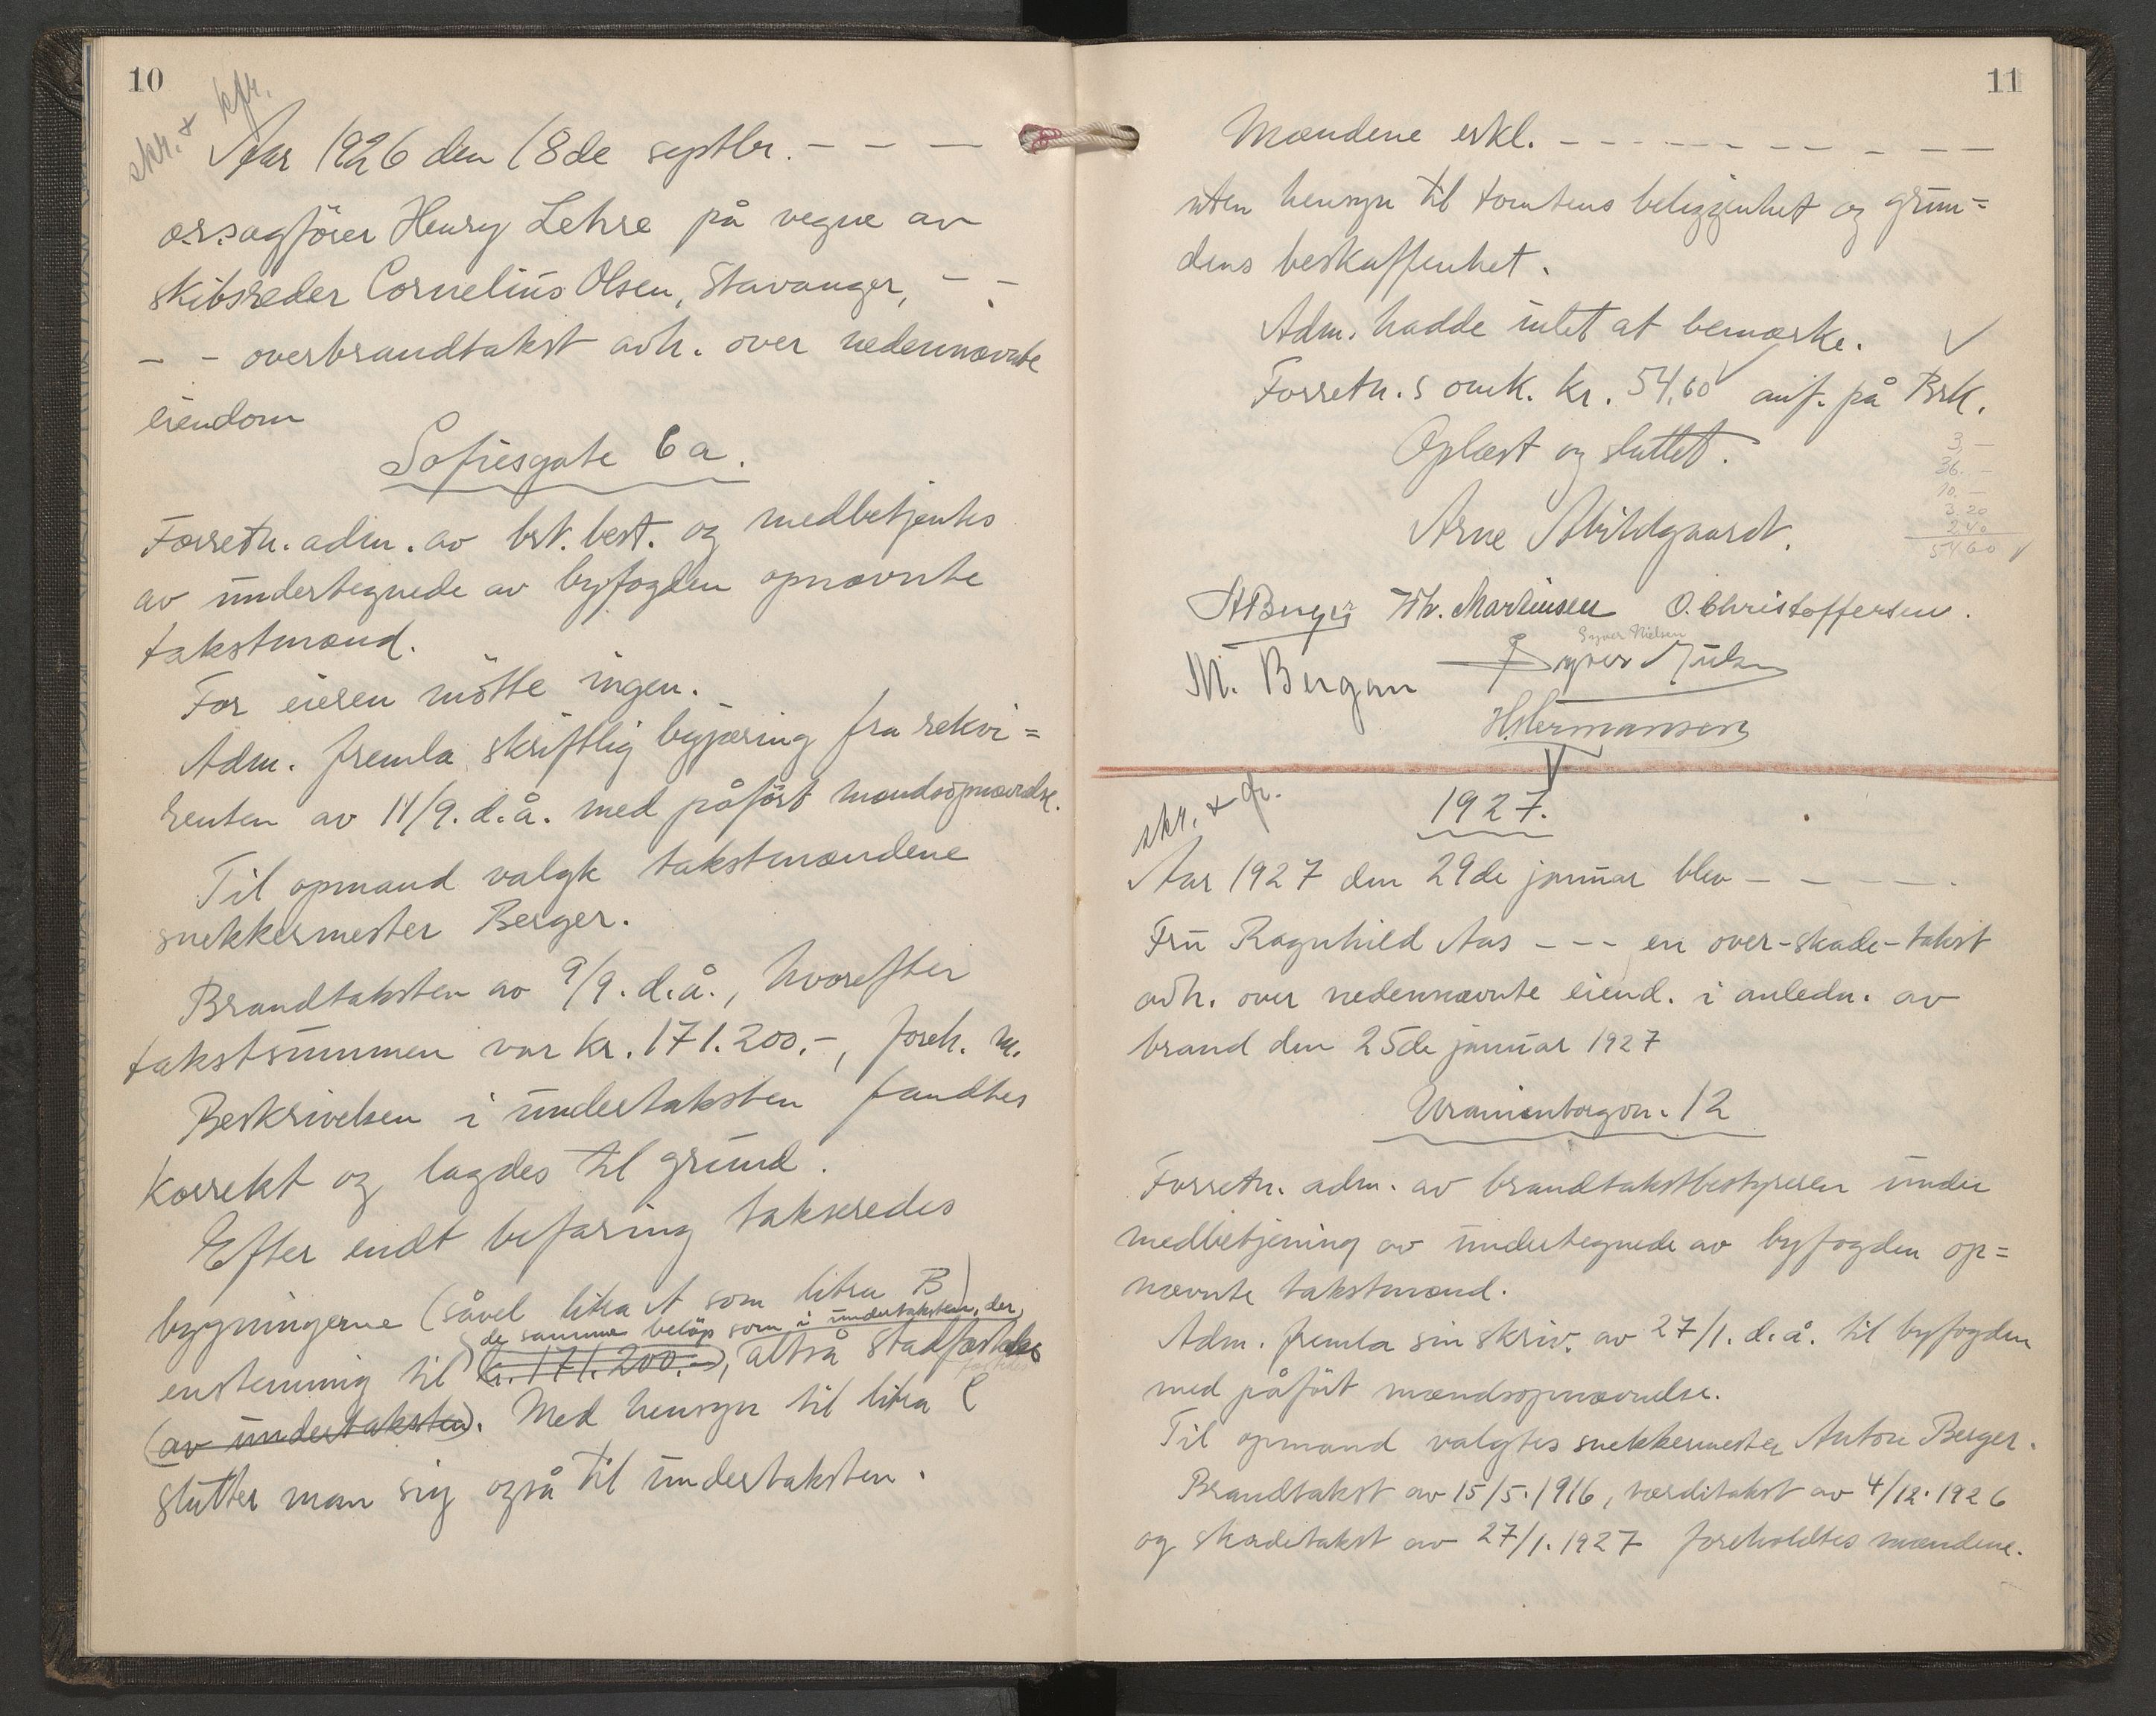 10
skr. + kfr.
Aar 1926 den 18de septbr. - - -
o.r.sagfører Henry Lehre på vegne av
skibsreder Cornelius Olsen, Stavanger, - -
- - overbrandtakst avh. over nedennævnte
eiendom
Sofiesgate 6a.
Forretn. adm. av brt. best. og medbetjentes
av undertegnede av byfogden opnævnte
takstmænd.
For eieren møtte ingen.
Adm. fremla skriftlig begjæring fra rekvi=
renten av 14/9. d.å. med påført mændsopnævnelse.
Til opmand valgte takstmændene
snekkermester Berger.
Brandtaksten av 9/9. d.å., hvorefter
takstsummen var kr. 171.200.-, foreh. m.
Beskrivelsen i undertaksten fandtes
korrekt og lagdes til grund.
Efter endt befaring takseredes
bygningerne (såvel litra A som litra B)
de samme beløp som i undertaksten, der,
enstemmig til (kr. 171.200.-), altså stadfæstedes
(av undertaksten). Med hensyn til litra C
slutter man sig også til undertaksten.
11
Mændene erkl. - - - - - - - - -
uten hensyn til tomtens beliggenhet og grun=
dens beskaffenhet.
Adm. hadde intet at bemærke.
Forretn.s omk. kr. 54,60 anf. på Brk.
Oplæst og sluttet.
3,-
36.-
10.-
3.20
2.40
54.60
Arne Abildgaardt.
A Berger Hh. Martinsen O. Christoffersen.
Syver Nielsen
M. Bergan Syver Nielsen
H. Hermansen
skr. + gr.
1927.
Aar 1927 den 29de januar blev - - - -
Fru Ragnhild Aas - - - en over-skade-takst
avh. over nedennævnte eiend. i anledn. av
brand den 25de januar 1927
Uranienborgvn. 12
Forretn. adm. av brandtakstbestyreren under
medbetjening av undertegnede av byfogden op=
nævnte takstmænd.
Adm. fremla sin skriv. av 27/1. d.å. til byfogden
med påført mændsopnævnelse.
Til opmand valgtes snekkermester Anton Berger.
Brandtakst av 15/5.1916, værditakst av 4/12.1926
og skadetakst av 27/1.1927 foreholdtes mændene.